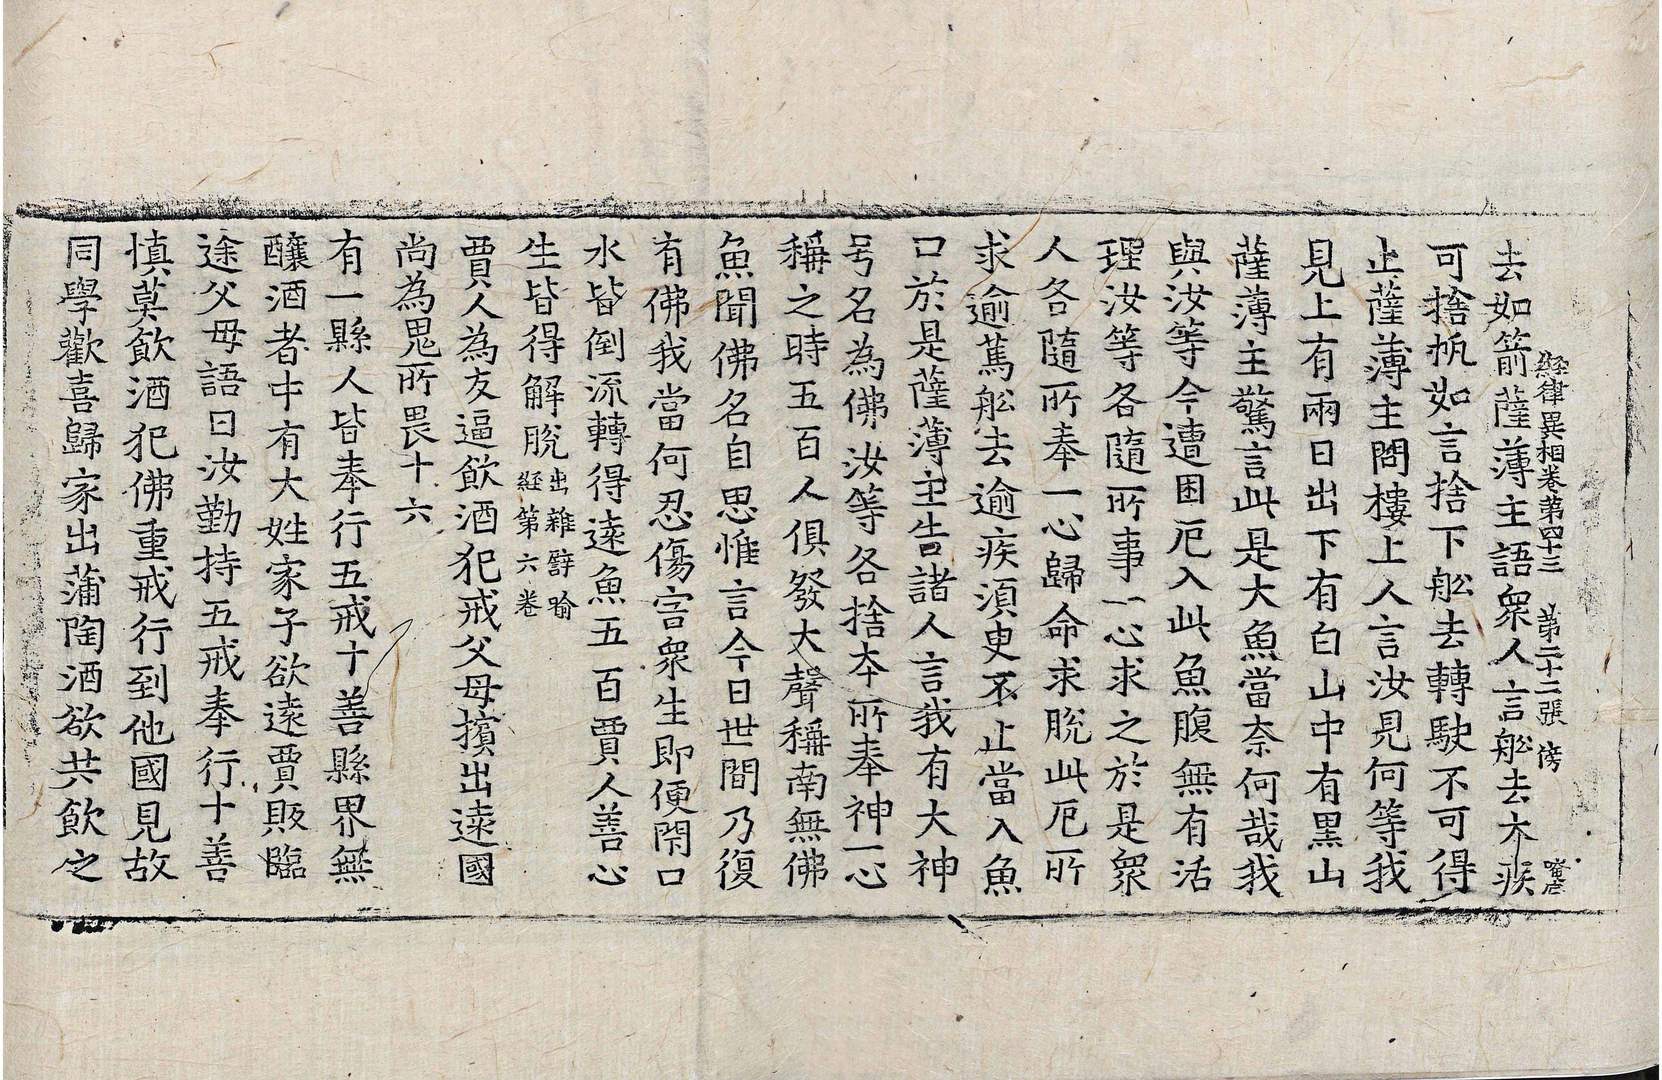 経律異相卷第四十三　第二十二張　傍
去如箭薩薄主語衆人言舩去太疾
可捨帆如言捨下舩去轉駛不可得
止薩薄主問樓上人言汝見何等我
見上有兩日出下有白山中有黒山
薩薄主驚言此是大魚當奈何哉我
與汝等今遭困厄入此魚腹無有活
理汝等各隨所事一心求之於是衆
人各隨所奉一心歸命求脫此厄所
求逾篤舩去逾疾須臾不止當入魚
口於是薩薄主告諸人言我有大神
号名為佛汝等各捨本所奉神一心
稱之時五百人俱發大聲稱南無佛
魚聞佛名自思惟言今日世間乃復
有佛我當何忍傷害衆生即便閇口
水皆倒流轉得遠魚五百賈人善心
生皆得解脫出雜譬喻経第六卷
賈人為友逼飮酒犯戒父母擯出遠國
尚為鬼所畏十六
有一縣人皆奉行五戒十善縣界無
釀酒者中有大姓家子欲遠賈販臨
途父母語曰汝勤持五戒奉行十善
慎莫飮酒犯佛重戒行到他國見故
同學歡喜歸家出蒲陶酒欲共飮之